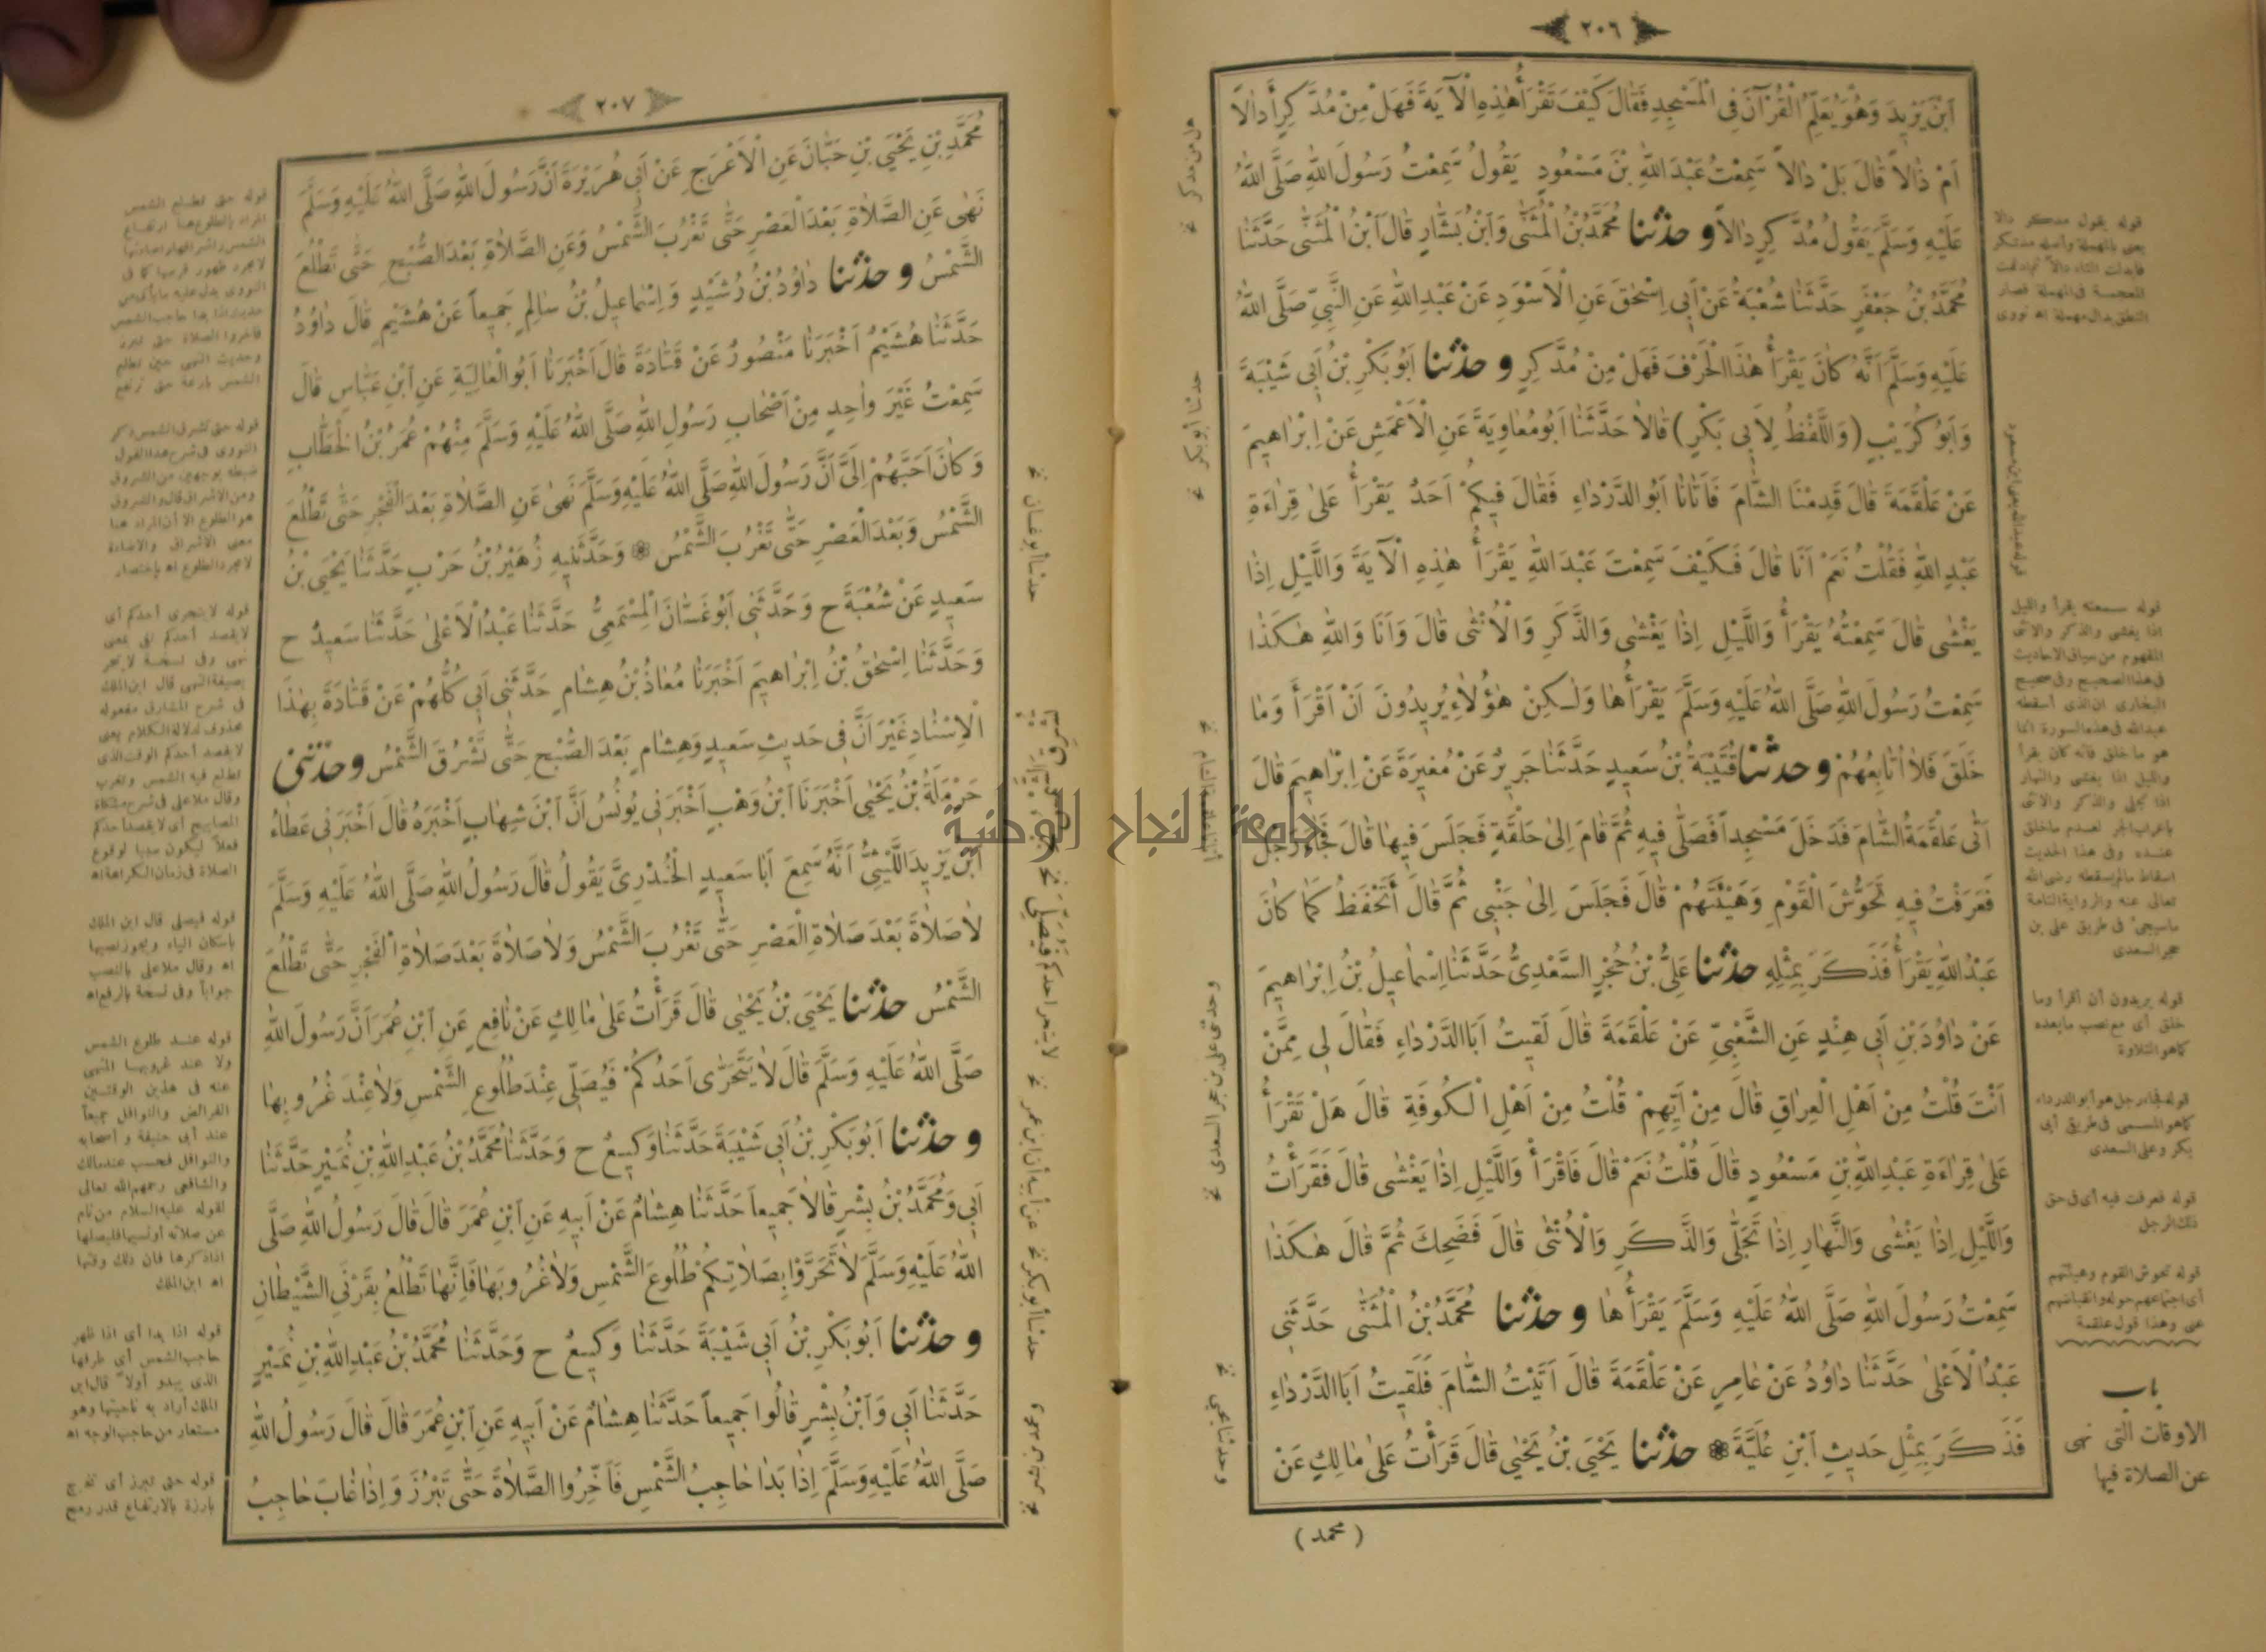 ٢٠٦
اَبْنَ يَزِيدَ وَهُوَ يُعَلِّمُ الْقُرْآنَ فِى الْمَسْجِدِ فَقَالَ كَيْفَ تَقْرَأُ هٰذِهِ الْآيَةَ فَهَلْ مِنْ مُدَّكِرٍ أَدَالاً
اَمْ ذَالاً قَالَ بَلْ دَالاً سَمِعْتُ عَبْدَ اللّٰهِ بْنَ مَسْعُودٍ يَقُولُ سَمِعْتُ رَسُولَ اللّٰهِ صَلَّى اللّٰهُ
عَلَيْهِ وَسَلَّمَ يَقُولُ مُدَّكِرٍ دَالاً و حدثنا مُحَمَّدُ بْنُ الْمُثَنّٰى وَابْنُ بَشَّارٍ قَالَ ابْنُ الْمُثَنّٰى حَدَّثَنَا
مُحَمَّدُ بْنُ جَعْفَرٍ حَدَّثَنَا شُعْبَةُ عَنْ اَبِى اِسْحٰقَ عَنِ الْاَسْوَدِ عَنْ عَبْدِ اللّٰهِ عَنِ النَّبِىِّ صَلَّى اللّٰهُ
عَلَيْهِ وَسَلَّمَ اَنَّهُ كَانَ يَقْرَأُ هٰذَا الْحَرْفَ فَهَلْ مِنْ مُدَّكِرٍ و حدثنا اَبُو بَكْرِ بْنُ اَبِى شَيْبَةَ
وَاَبُو كُرَيْبٍ (وَاللَّفْظُ لِاَبِى بَكْرٍ) قَالَا حَدَّثَنَا اَبُو مُعَاوِيَةَ عَنِ الْاَعْمَشِ عَنْ اِبْرَاهِيمَ
عَنْ عَلْقَمَةَ قَالَ قَدِمْنَا الشَّامَ فَاَتَانَا اَبُو الدَّرْدَاءِ فَقَالَ فِيكُمْ اَحَدٌ يَقْرَأُ عَلَى قِرَاءَةِ
عَبْدِ اللّٰهِ فَقُلْتُ نَعَمْ اَنَا قَالَ فَكَيْفَ سَمِعْتَ عَبْدَ اللّٰهِ يَقْرَأُ هٰذِهِ الْآيَةَ وَاللَّيْلِ اِذَا
يَغْشٰى قَالَ سَمِعْتُهُ يَقْرَأُ وَاللَّيْلِ اِذَا يَغْشٰى وَالذَّكَرِ وَالْاُنْثٰى قَالَ وَاَنَا وَاللّٰهِ هٰكَذَا
سَمِعْتُ رَسُولَ اللّٰهِ صَلَّى اللّٰهُ عَلَيْهِ وَسَلَّمَ يَقْرَأُهَا وَلٰكِنْ هٰؤُلَاءِ يُرِيدُونَ اَنْ اَقْرَأَ وَمَا
خَلَقَ فَلَا اُتَابِعُهُمْ و حدثنا قُتَيْبَةُ بْنُ سَعِيدٍ حَدَّثَنَا جَرِيرٌ عَنْ مُغِيرَةَ عَنْ اِبْرَاهِيمَ قَالَ
اَتٰى عَلْقَمَةُ الشَّامَ فَدَخَلَ مَسْجِداً فَصَلَّى فِيهِ ثُمَّ قَامَ اِلٰى حَلْقَةٍ فَجَلَسَ فِيهَا قَالَ فَجَاءَ رَجُلٌ
فَعَرَفْتُ فِيهِ تَحَوُّشَ الْقَوْمِ وَهَيْئَتَهُمْ قَالَ فَجَلَسَ اِلٰى جَنْبِى ثُمَّ قَالَ أَتَحْفَظُ كَمَا كَانَ
عَبْدُ اللّٰهِ يَقْرَأُ فَذَكَرَ بِمِثْلِهِ حدثنا عَلِىُّ بْنُ حُجْرٍ السَّعْدِىُّ حَدَّثَنَا اِسْمَاعِيلُ بْنُ اِبْرَاهِيمَ
عَنْ دَاوُدَ بْنِ اَبِى هِنْدٍ عَنِ الشَّعْبِىِّ عَنْ عَلْقَمَةَ قَالَ لَقِيتُ اَبَا الدَّرْدَاءِ فَقَالَ لِى مِمَّنْ
اَنْتَ قُلْتُ مِنْ اَهْلِ الْعِرَاقِ قَالَ مِنْ اَيِّهِمْ قُلْتُ مِنْ اَهْلِ الْكُوفَةِ قَالَ هَلْ تَقْرَأُ
عَلٰى قِرَاءَةِ عَبْدِ اللّٰهِ بْنِ مَسْعُودٍ قَالَ قُلْتُ نَعَمْ قَالَ فَاقْرَأْ وَاللَّيْلِ اِذَا يَغْشٰى قَالَ فَقَرَأْتُ
وَاللَّيْلِ اِذَا يَغْشٰى وَالنَّهَارِ اِذَا تَجَلّٰى وَالذَّكَرِ وَالْاُنْثٰى قَالَ فَضَحِكَ ثُمَّ قَالَ هٰكَذَا
سَمِعْتُ رَسُولَ اللّٰهِ صَلَّى اللّٰهُ عَلَيْهِ وَسَلَّمَ يَقْرَأُهَا و حدثنا مُحَمَّدُ بْنُ الْمُثَنّٰى حَدَّثَنِى
عَبْدُ الْاَعْلٰى حَدَّثَنَا دَاوُدُ عَنْ عَامِرٍ عَنْ عَلْقَمَةَ قَالَ اَتَيْتُ الشَّامَ فَلَقِيتُ اَبَا الدَّرْدَاءِ
فَذَكَرَ بِمِثْلِ حَدِيثِ ابْنِ عُلَيَّةَ ❁ حدثنا يَحْيَى بْنُ يَحْيٰى قَالَ قَرَأْتُ عَلٰى مَالِكٍ عَنْ
(محمد)
قوله يقول مدكر دالا
يعنى بالمهملة وأصله مذتكر
فابدلت التاء دالاً ثم ادغمت
المعجمة فى المهملة فصار
النطق بدال مهملة اه نووى
قوله عبد الله يعنى ابن مسعود
قوله سمعته يقرأ والليل
اذا يغشى والذكر والانثى
المفهوم من سياق الاحاديث
فى هذا الصحيح وفى صحيح
البخارى ان الذى أسقطه
عبدالله فى هذه السورة انما
هو ما خلق فانه كان يقرأ
والليل اذا يغشى والنهار
اذا تجلى والذكر والانثى
باعراب الجر لعدم ماخلق
عنده وفى هذا الحديث
اسقاط مالم يسقطه رضى الله
تعالى عنه والرواية التامة
ماسيجئ فى طريق على بن
حجر السعدى
قوله يريدون أن أقرأ وما
خلق أى مع نصب مابعده
كما هو التلاوة
قوله فجاء رجل هو أبو الدرداء
كما هو المسمى فى طريق أبى
بكر وعلى السعدى
قوله فعرفت فيه أى فى حق
ذلك الرجل
قوله تحوش القوم وهيئتهم
أى اجتماعهم حوله وانقباضهم
عنى وهذا قول علقمة
باب
الاوقات التى نهى
عن الصلاة فيها
هل من مدكر نخ
حدثنا أبو بكر نخ
وحدثنى على بن حجر السعدى نخ
وحدثنا يحيى نخ
جامعة النجاح الوطنية
٢٠٧
مُحَمَّدِ بْنِ يَحْيَى بْنِ حَبَّانَ عَنِ الْاَعْرَجِ عَنْ اَبِى هُرَيْرَةَ اَنَّ رَسُولَ اللّٰهِ صَلَّى اللّٰهُ عَلَيْهِ وَسَلَّمَ
نَهٰى عَنِ الصَّلَاةِ بَعْدَ الْعَصْرِ حَتّٰى تَغْرُبَ الشَّمْسُ وَعَنِ الصَّلَاةِ بَعْدَ الصُّبْحِ حَتّٰى تَطْلُعَ
الشَّمْسُ و حدثنا دَاوُدُ بْنُ رُشَيْدٍ وَاِسْمَاعِيلُ بْنُ سَالِمٍ جَمِيعاً عَنْ هُشَيْمٍ قَالَ دَاوُدُ
حَدَّثَنَا هُشَيْمٌ اَخْبَرَنَا مَنْصُورٌ عَنْ قَتَادَةَ قَالَ اَخْبَرَنَا اَبُو الْعَالِيَةِ عَنِ ابْنِ عَبَّاسٍ قَالَ
سَمِعْتُ غَيْرَ وَاحِدٍ مِنْ اَصْحَابِ رَسُولِ اللّٰهِ صَلَّى اللّٰهُ عَلَيْهِ وَسَلَّمَ مِنْهُمْ عُمَرُ بْنُ الْخَطَّابِ
وَكَانَ اَحَبَّهُمْ اِلَىَّ اَنَّ رَسُولَ اللّٰهِ صَلَّى اللّٰهُ عَلَيْهِ وَسَلَّمَ نَهٰى عَنِ الصَّلَاةِ بَعْدَ الْفَجْرِ حَتّٰى تَطْلُعَ
الشَّمْسُ وَبَعْدَ الْعَصْرِ حَتّٰى تَغْرُبَ الشَّمْسُ ❁ وَحَدَّثَنِيهِ زُهَيْرُ بْنُ حَرْبٍ حَدَّثَنَا يَحْيَى بْنُ
سَعِيدٍ عَنْ شُعْبَةَ ح وَحَدَّثَنِى اَبُو غَسَّانَ الْمِسْمَعِىُّ حَدَّثَنَا عَبْدُ الْاَعْلٰى حَدَّثَنَا سَعِيدٌ ح
وَحَدَّثَنَا اِسْحٰقُ بْنُ اِبْرَاهِيمَ اَخْبَرَنَا مُعَاذُ بْنُ هِشَامٍ حَدَّثَنِى اَبِى كُلُّهُمْ عَنْ قَتَادَةَ بِهٰذَا
الْاِسْنَادِ غَيْرَ اَنَّ فِى حَدِيثِ سَعِيدٍ وَهِشَامٍ بَعْدَ الصُّبْحِ حَتّٰى تَشْرُقَ الشَّمْسُ وحدثنى
حَرْمَلَةُ بْنُ يَحْيٰى اَخْبَرَنَا ابْنُ وَهْبٍ اَخْبَرَنِى يُونُسُ اَنَّ ابْنَ شِهَابٍ اَخْبَرَهُ قَالَ اَخْبَرَنِى عَطَاءُ
ابْنُ يَزِيدَ اللَّيْثِىُّ اَنَّهُ سَمِعَ اَبَا سَعِيدٍ الْخُدْرِىَّ يَقُولُ قَالَ رَسُولُ اللّٰهِ صَلَّى اللّٰهُ عَلَيْهِ وَسَلَّمَ
لَا صَلَاةَ بَعْدَ صَلَاةِ الْعَصْرِ حَتّٰى تَغْرُبَ الشَّمْسُ وَلَا صَلَاةَ بَعْدَ صَلَاةِ الْفَجْرِ حَتّٰى تَطْلُعَ
الشَّمْسُ حدثنا يَحْيَى بْنُ يَحْيٰى قَالَ قَرَأْتُ عَلٰى مَالِكٍ عَنْ نَافِعٍ عَنِ ابْنِ عُمَرَ اَنَّ رَسُولَ اللّٰهِ
صَلَّى اللّٰهُ عَلَيْهِ وَسَلَّمَ قَالَ لَا يَتَحَرَّى اَحَدُكُمْ فَيُصَلِّى عِنْدَ طُلُوعِ الشَّمْسِ وَلَا عِنْدَ غُرُوبِهَا
و حدثنا اَبُو بَكْرِ بْنُ اَبِى شَيْبَةَ حَدَّثَنَا وَكِيعٌ ح وَحَدَّثَنَا مُحَمَّدُ بْنُ عَبْدِ اللّٰهِ بْنِ نُمَيْرٍ حَدَّثَنَا
اَبِى وَمُحَمَّدُ بْنُ بِشْرٍ قَالَا جَمِيعاً حَدَّثَنَا هِشَامٌ عَنْ اَبِيهِ عَنِ ابْنِ عُمَرَ قَالَ قَالَ رَسُولُ اللّٰهِ صَلَّى
اللّٰهُ عَلَيْهِ وَسَلَّمَ لَا تَحَرَّوْا بِصَلَاتِكُمْ طُلُوعَ الشَّمْسِ وَلَا غُرُوبَهَا فَاِنَّهَا تَطْلُعُ بِقَرْنَىِ الشَّيْطَانِ
و حدثنا اَبُو بَكْرِ بْنُ اَبِى شَيْبَةَ حَدَّثَنَا وَكِيعٌ ح وَحَدَّثَنَا مُحَمَّدُ بْنُ عَبْدِ اللّٰهِ بْنِ نُمَيْرٍ
حَدَّثَنَا اَبِى وَابْنُ بِشْرٍ قَالُوا جَمِيعاً حَدَّثَنَا هِشَامٌ عَنْ اَبِيهِ عَنِ ابْنِ عُمَرَ قَالَ قَالَ رَسُولُ اللّٰهِ
صَلَّى اللّٰهُ عَلَيْهِ وَسَلَّمَ اِذَا بَدَا حَاجِبُ الشَّمْسِ فَاَخِّرُوا الصَّلَاةَ حَتّٰى تَبْرُزَ وَاِذَا غَابَ حَاجِبُ
حدثنا أبو غسان نخ
فيصلى نخ
لا يتحر احدكم
عن أبيه أن ابن عمر نخ
حدثنا أبو بكر نخ
قوله حتى تطلع الشمس
المراد بالطلوع هنا ارتفاع
الشمس واشراقها واضاءتها
لا مجرد ظهور قرصها كما فى
النووى يدل عليه ما يأتى من
حديث اذا بدا حاجب الشمس
فاخروا الصلاة حتى تبرز
وحديث النهى حين تطلع
الشمس بازغة حتى ترتفع
قوله حتى تشرق الشمس ذكر
النووى فى شرح هذا القول
ضبطه بوجهين من الشروق
ومن الاشراق قال والشروق
هو الطلوع الا أن المراد هنا
معنى الاشراق والاضاءة
لا مجرد الطلوع اه باختصار
قوله لا يتحرى أحدكم أى
لا يقصد أحدكم نفى بمعنى
نهى وفى نسخة لا يتحر
بصيغة النهى قال ابن الملك
فى شرح المشارق مفعوله
محذوف لدلالة الكلام يعنى
لا يقصد أحدكم الوقت الذى
تطلع فيه الشمس وتغرب
وقال ملا على فى شرح مشكاة
المصابيح أى لا يقصد أحدكم
فعلاً ليكون سببا لوقوع
الصلاة فى زمان الكراهة اه
قوله فيصلى قال ابن الملك
باسكان الياء ويجوز نصبها
اه وقال ملا على بالنصب
جواباً وفى نسخة بالرفع اه
قوله عند طلوع الشمس
ولا عند غروبها المنهى
عنه فى هذين الوقتين
الفرائض والنوافل جميعاً
عند أبى حنيفة وأصحابه
والنوافل فحسب عند مالك
والشافعى رحمهم الله تعالى
لقوله عليه السلام من نام
عن صلاته أو نسيها فليصلها
اذا ذكرها فان ذلك وقتها
اه ابن الملك
قوله اذا بدا أى اذا ظهر
حاجب الشمس أى طرفها
الذى يبدو أولاً قال ابن
الملك أراد به ناحيتها وهو
مستعار من حاجب الوجه اه
قوله حتى تبرز أى تخرج
بارزة بالارتفاع قدر رمح